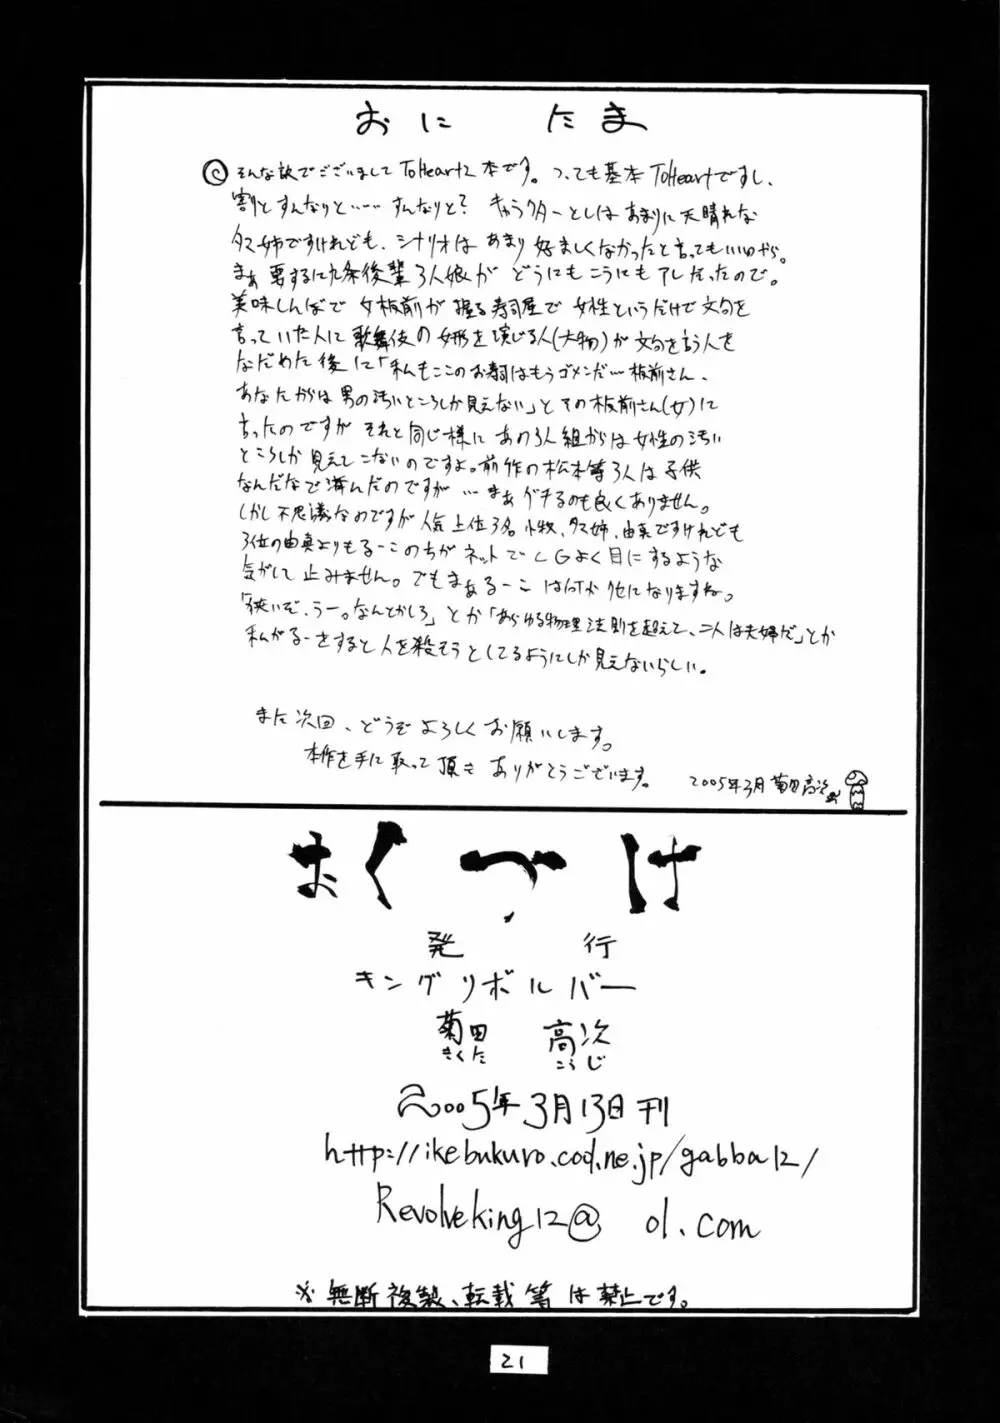 おに たま
そんな訳でございまして ToHeart2 本です。つっても基本 ToHeartですし、
割とすんなりと…… すんなりと？ キャラクターとしは あまりに天晴れな
タマ姉ですけれども、シナリオは あまり 好ましくなかったと言ってもいいやら。
まぁ 要するに九条後輩3人娘が どうにもこうにもアレだったので。
美味しんぼで 女板前が 握る寿司屋で 女性というだけで文句を
言っていた人に歌舞伎の女形を演じる人(大物)が 文句を言う人を
なだめた後に「私もここのお寿司はもうゴメンだ…板前さん、
あなたからは男の汚いところしか見えない」とその板前さん(女)に
言ったのですが それと同じ様に あの3人組からは女性の汚い
ところしか見えてこないのですよ。前作の松本等3人は子供
なんだなで済んだのですが …まぁグチるのも良くありません。
しかし不思議なのですが人気上位3名 小牧、タマ姉、由真ですけれども
3位の由真よりもるーこのちがネットで しGよく目にするような
気がして止みません。でもまぁるーこ は何か クセになりますね。
「狭いぞ、うー。なんとかしろ」とか「あらゆる物理法則を超えて、二人は夫婦だ」とか
私がるーをすると人を殺そうとしてるようにしか見えないらしい。
また次回、どうぞ よろしく お願いします。
本作を手に取って頂き ありがとうございます。
2005年3月 菊田高次
おくづけ
発 行
キングリボルバー
菊田 高次
きくた こうじ
2005年3月13日刊
http://ikebukuro.cool.ne.jp/gabba12/
Revolveking12@ ol.com
※無断複製、転載等は禁止です。
21